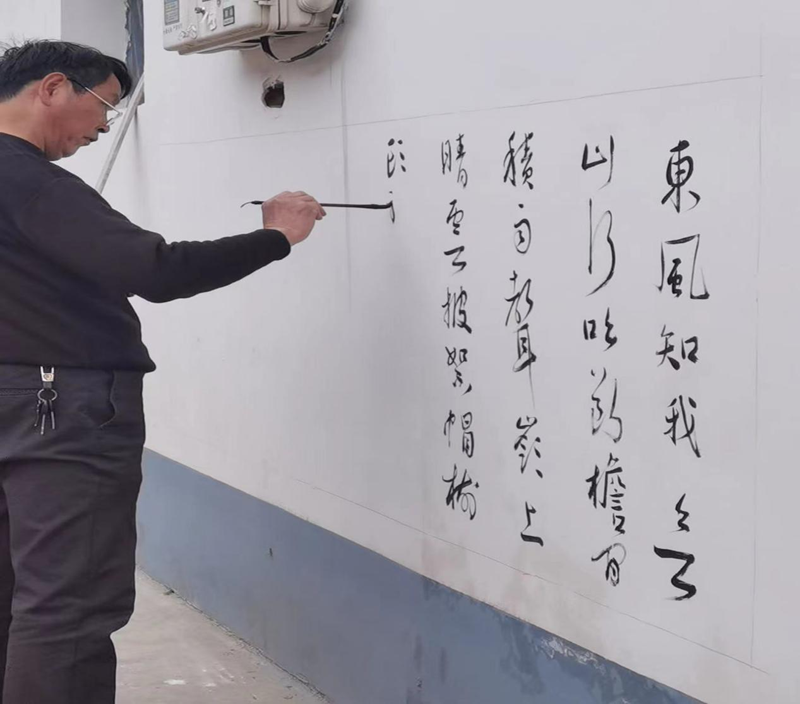 東風知我欲
山行吹斷檐間
積雨聲嶺上
晴雲披絮帽樹
頭